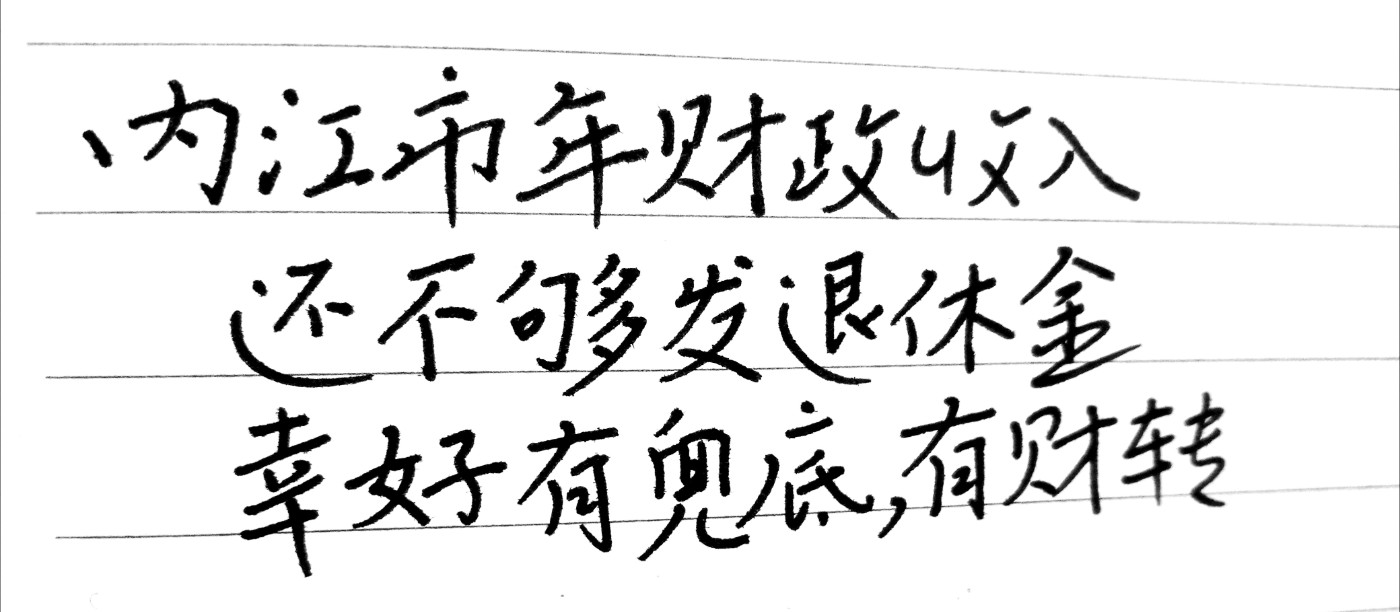 内江市年财政收入
还不够发退休金
幸好有兜底,有财转